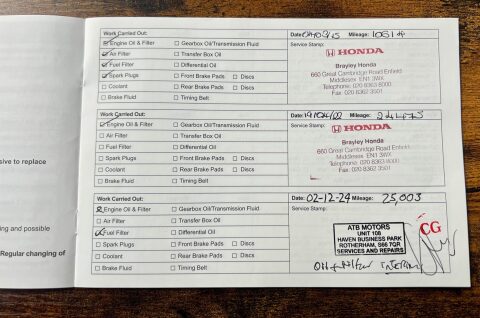 Work Carried Out: Date: Mileage:
Engine Oil & Filter Gearbox Oil/Transmission Fluid Service Stamp:
Air Filter Transfer Box Oil HONDA
Fuel Filter Differential Oil Brayley Honda
Spark Plugs Front Brake Pads Discs 660 Great Cambridge Road Enfield
Coolant Rear Brake Pads Discs Middlesex EN1 3WX
Brake Fluid Timing Belt Telephone 020 8363 8000
Fax 020 8362 3501
Work Carried Out: Date: Mileage:
Engine Oil & Filter Gearbox Oil/Transmission Fluid Service Stamp:
Air Filter Transfer Box Oil HONDA
Fuel Filter Differential Oil Brayley Honda
Spark Plugs Front Brake Pads Discs 660 Great Cambridge Road Enfield
Coolant Rear Brake Pads Discs Middlesex EN1 3WX
Brake Fluid Timing Belt Telephone 020 8363
Fax 020 8362 3501
Work Carried Out: Date: 02-12-24 Mileage: 25,003
Engine Oil & Filter Gearbox Oil/Transmission Fluid Service Stamp:
Air Filter Transfer Box Oil
Fuel Filter Differential Oil
Spark Plugs Front Brake Pads Discs
Coolant Rear Brake Pads Discs
Brake Fluid Timing Belt
ATB MOTORS
UNIT 108
HAVEN BUSINESS PARK
ROTHERHAM, S66 7QR
SERVICES AND REPAIRS
CG
INTERIM
sive to replace
ing and possible
Regular changing of